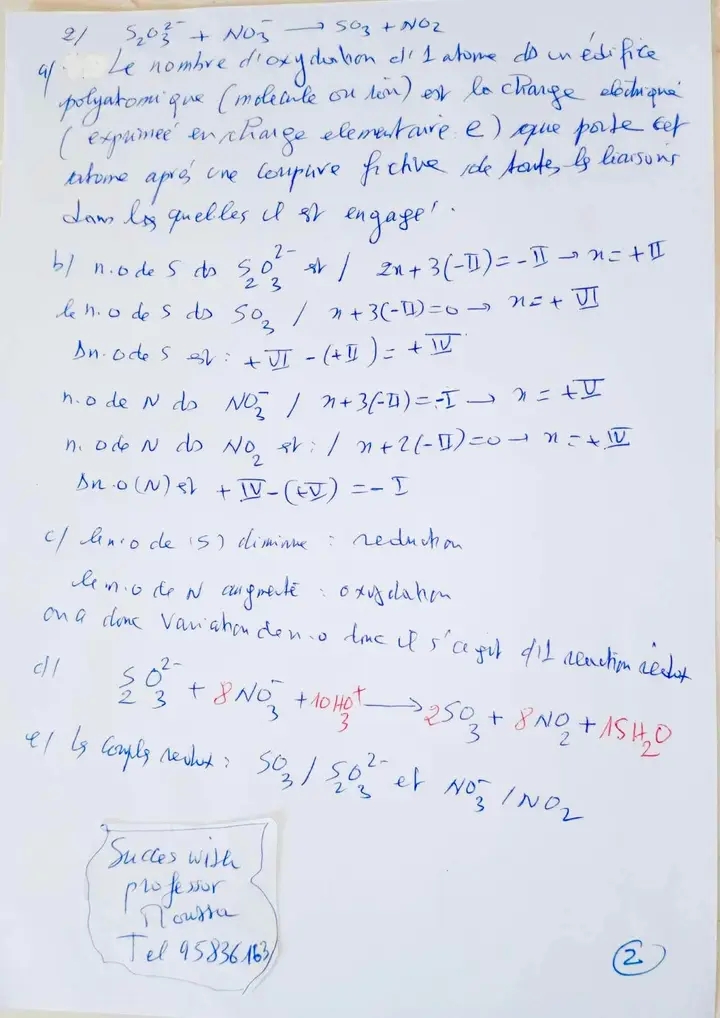 2/ S₂O₃²⁻ + NO₃⁻ → SO₃ + NO₂
a/ Le nombre d'oxydation d'1 atome ds un édifice
polyatomique (molécule ou ion) est la charge electrique
(exprimeé en charge elementaire e) que porte cet
atome aprés une coupure fictive de toutes les liaisons
dans les quelles il est engagé.
b/ n.o de S ds S₂O₃²⁻ est / 2x + 3(-II) = -II → x = +II
le n.o de S ds SO₃ / x + 3(-II) = 0 → x = + VI
Δn.o de S est : + VI - (+II) = + IV
n.o de N ds NO₃⁻ / x + 3(-II) = -I → x = +V
n.o de N ds NO₂ est : / x + 2(-II) = 0 → x = + IV
Δn.o (N) est + IV - (+V) = - I
c/ le n.o de (S) diminue : reduction
le n.o de N augmenté : oxydation
on a donc Variation de n.o donc il s'agit d'1 reaction redox
d/ S₂O₃²⁻ + 8NO₃⁻ + 10H₃O⁺ → 2SO₃ + 8NO₂ + 15H₂O
e/ les couples redox : SO₃ / S₂O₃²⁻ et NO₃⁻ / NO₂
Succes with
professor
Moussa
Tel 95836163
2